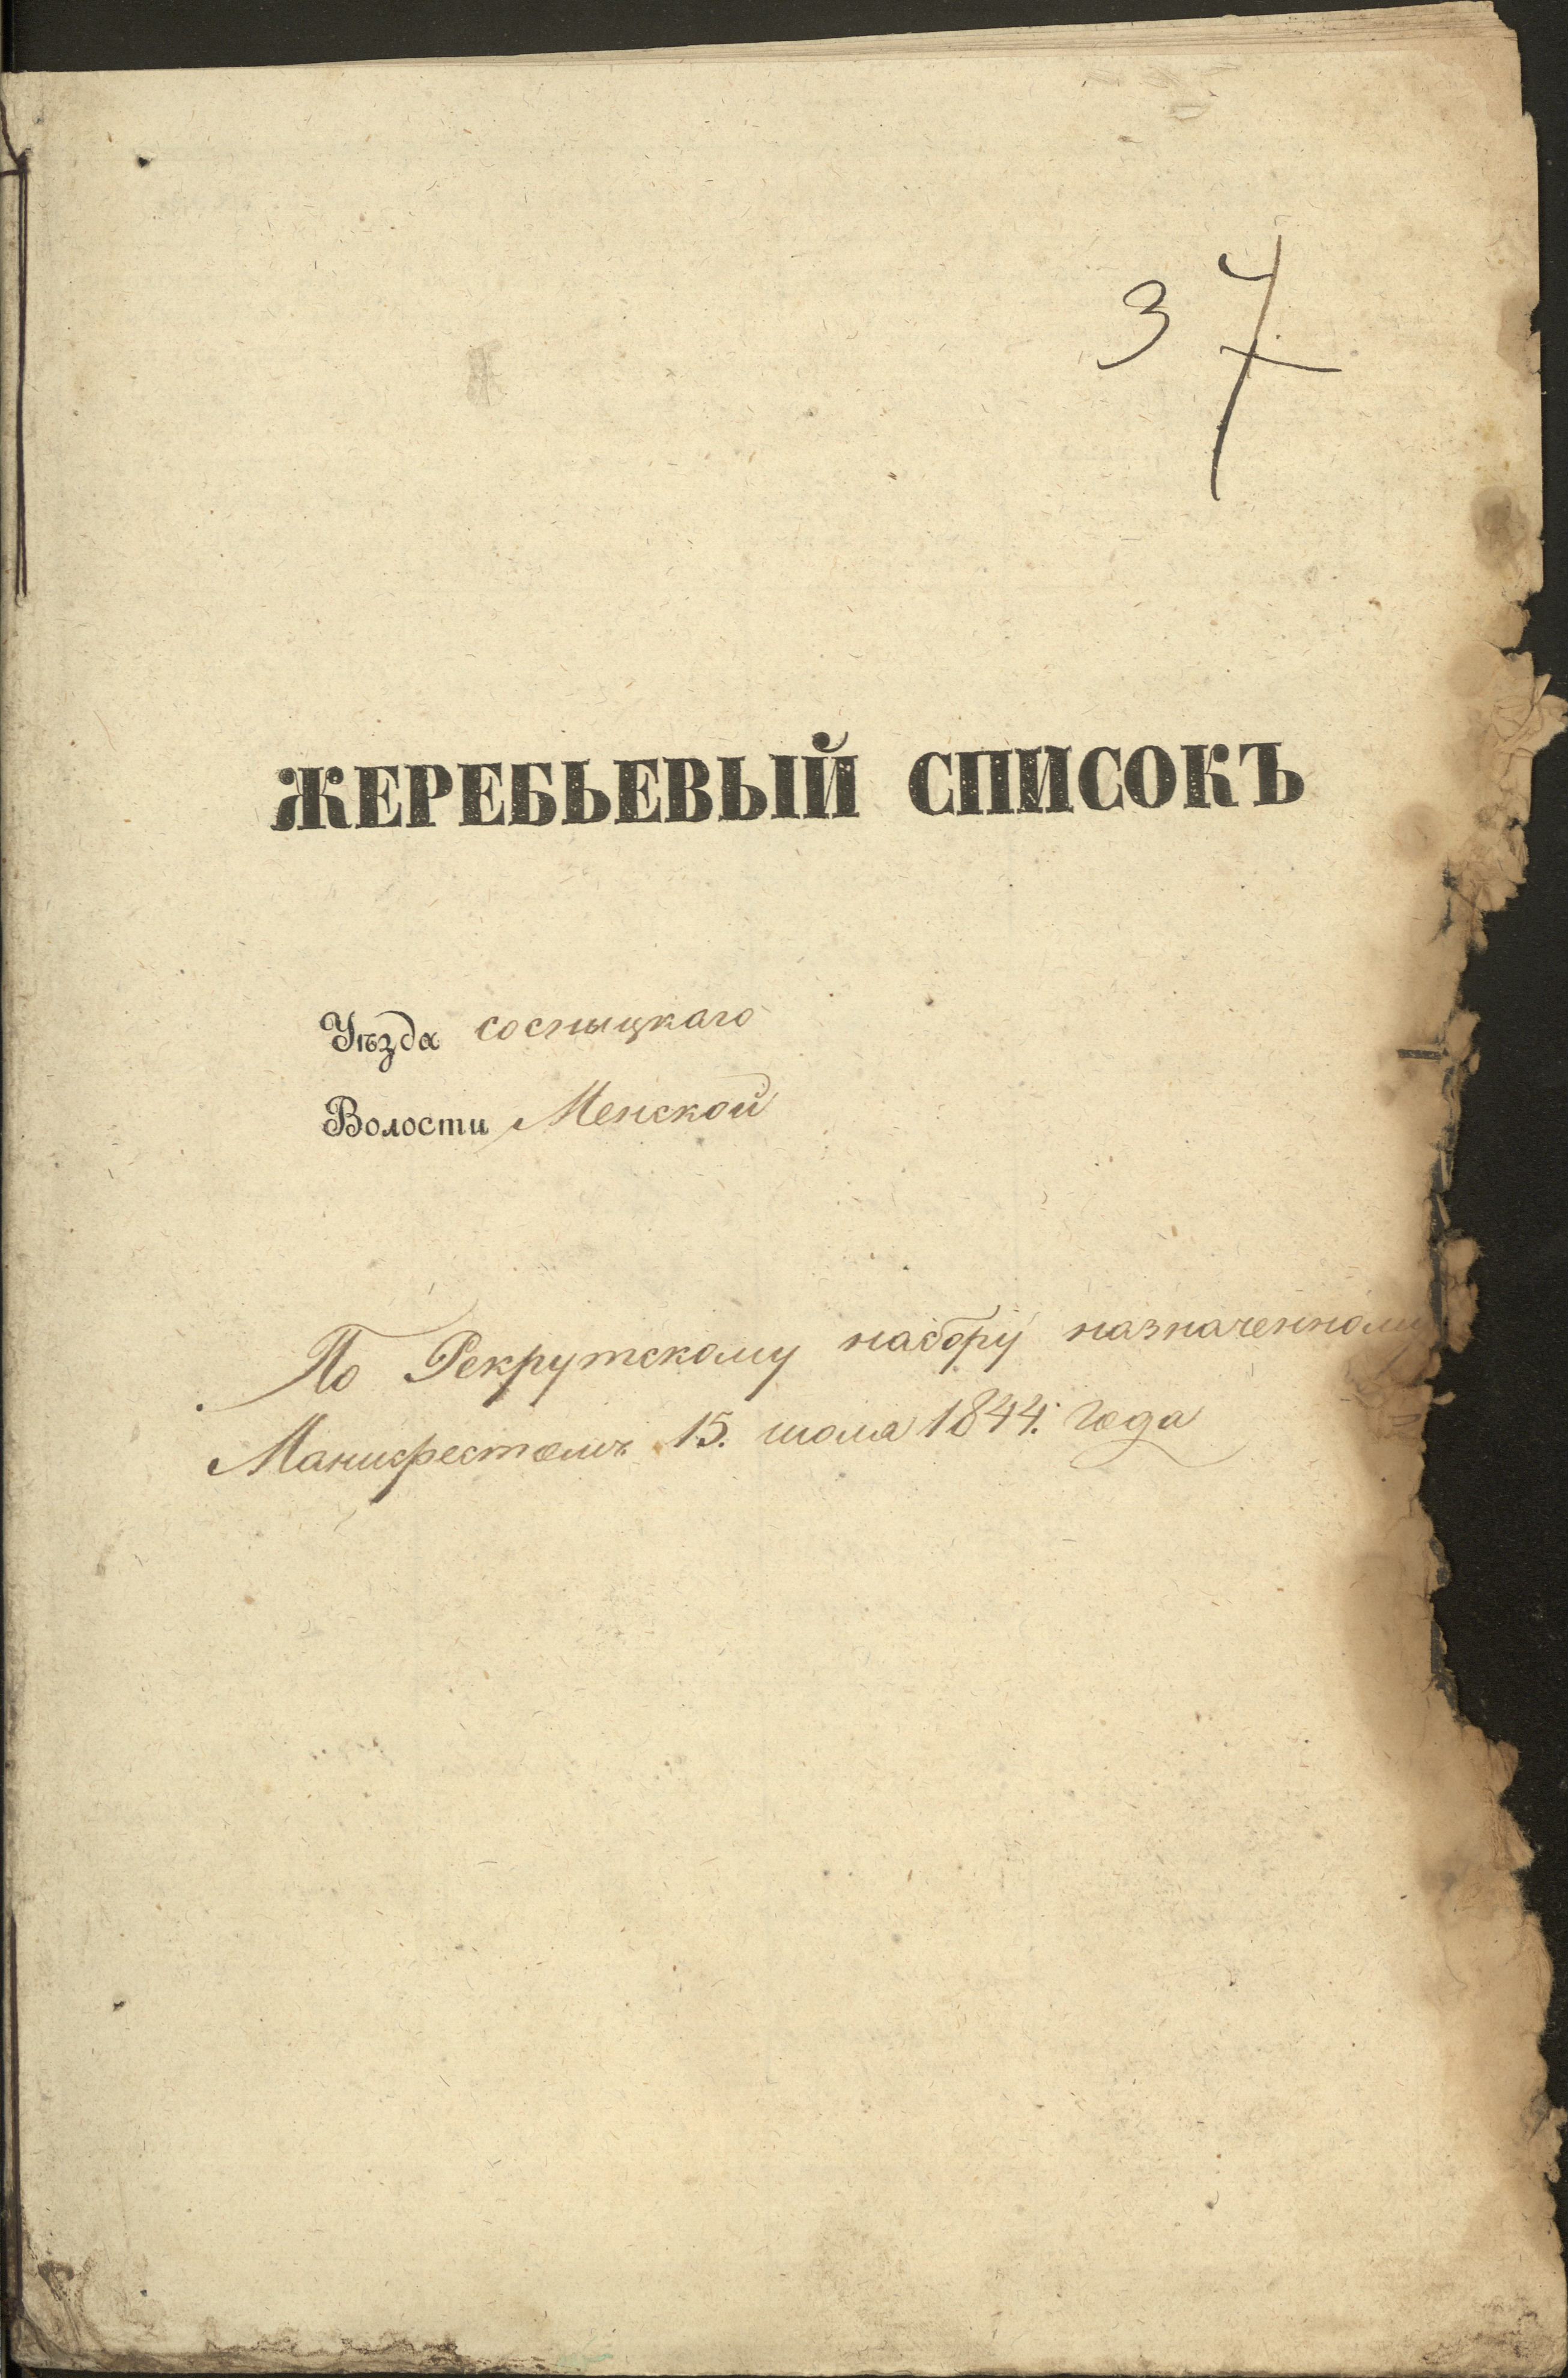 37
ЖЕРЕБЬЕВЫЙ СПИСОКЪ
Уѣзда сосныцкаго
Волости Менской
По Рекрутскому набору назначенному
Манифестомъ 15. июля 1844. года